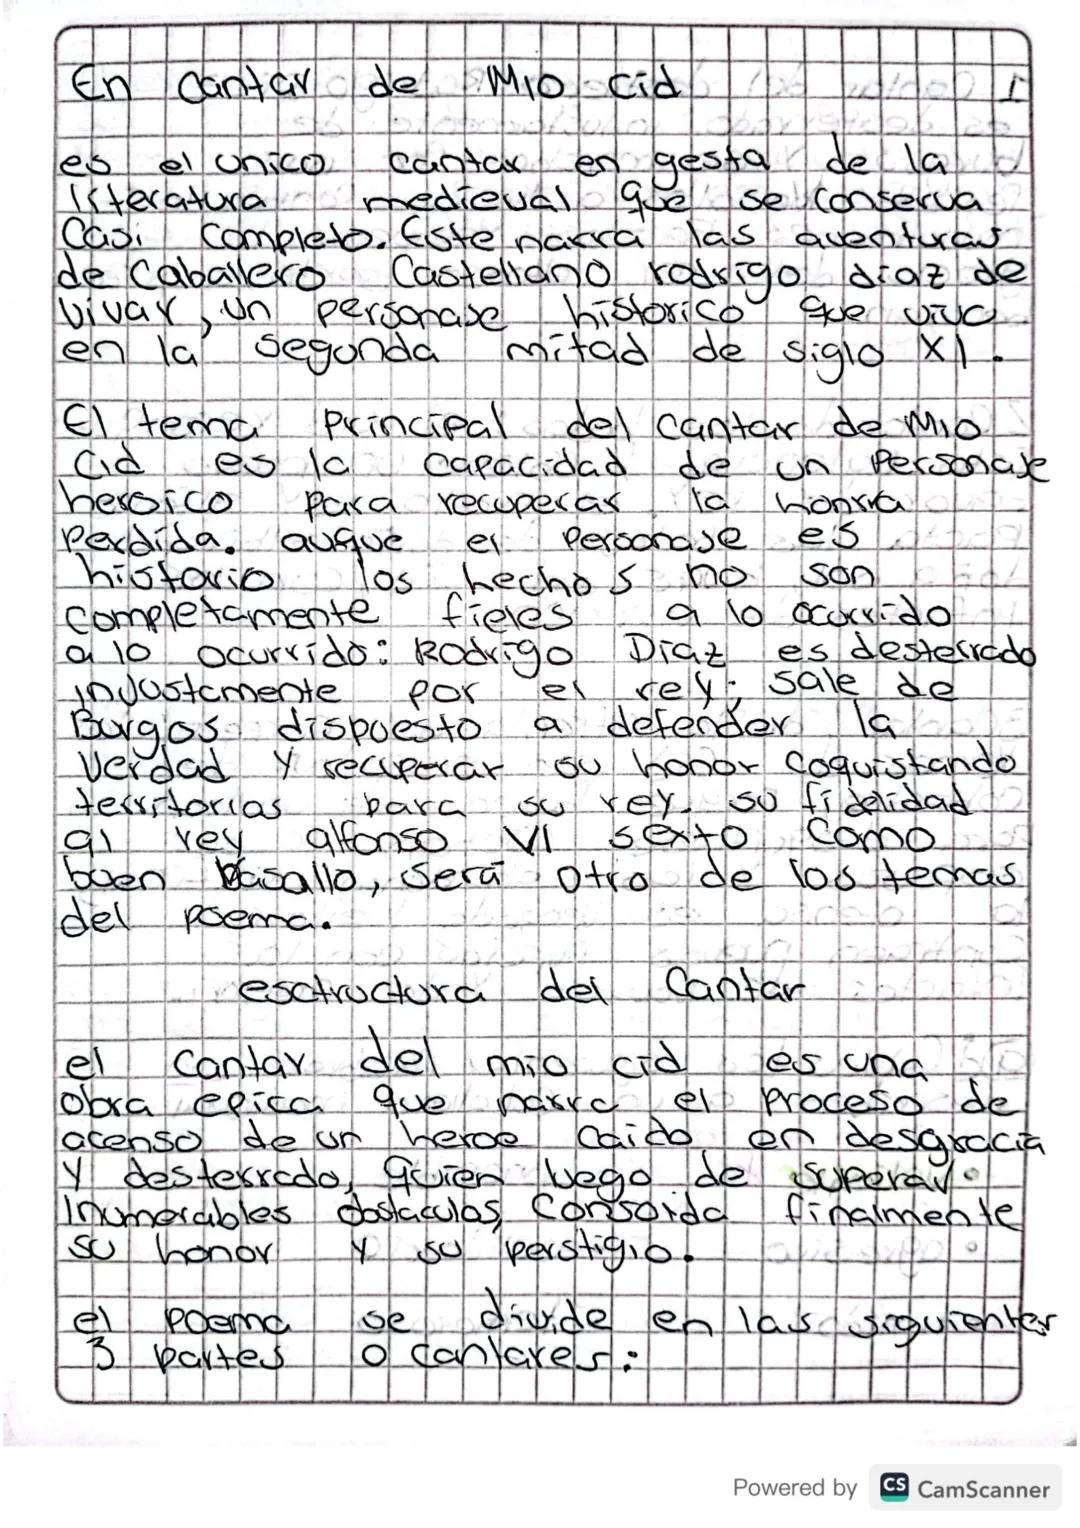 En Cantar de Mio Cid 1
es el unico cantar en gesta de la
literatura medieval que se conserva
Casi completo. Este narra las aventuras
de Caballero Castellano rodrigo diaz de
vivar, un personaje historico que vivo
en la segunda mitad de siglo XI.
El tema Principal del cantar de Mio
Cid es la capacidad de un Personaje
heroico para recuperar la honrra
Perdida. auque el Personaje es
historio los hechos no son
completamente fieles a lo ocurrido
a lo ocurrido: Rodrigo Diaz es desterrado
injustamente por el rey; sale de
Burgos dispuesto a defender la
Verdad y recuperar su honor Coquistando
territorias para su rey. su fidelidad
al rey alfonso VI sexto Como
buen Basallo, Será otro de los temas
del poema.
esctructura del Cantar
el Cantar del mio cid es una
obra epica que narra el proceso de
acenso de un heroe Caido en desgracia
y desterrado, quien luego de superar
Inumerables obstaculos, Consorida finalmente
su honor y su perstigio.
el poema se divide en las siguienter
3 partes o cantares:
Powered by CS CamScanner